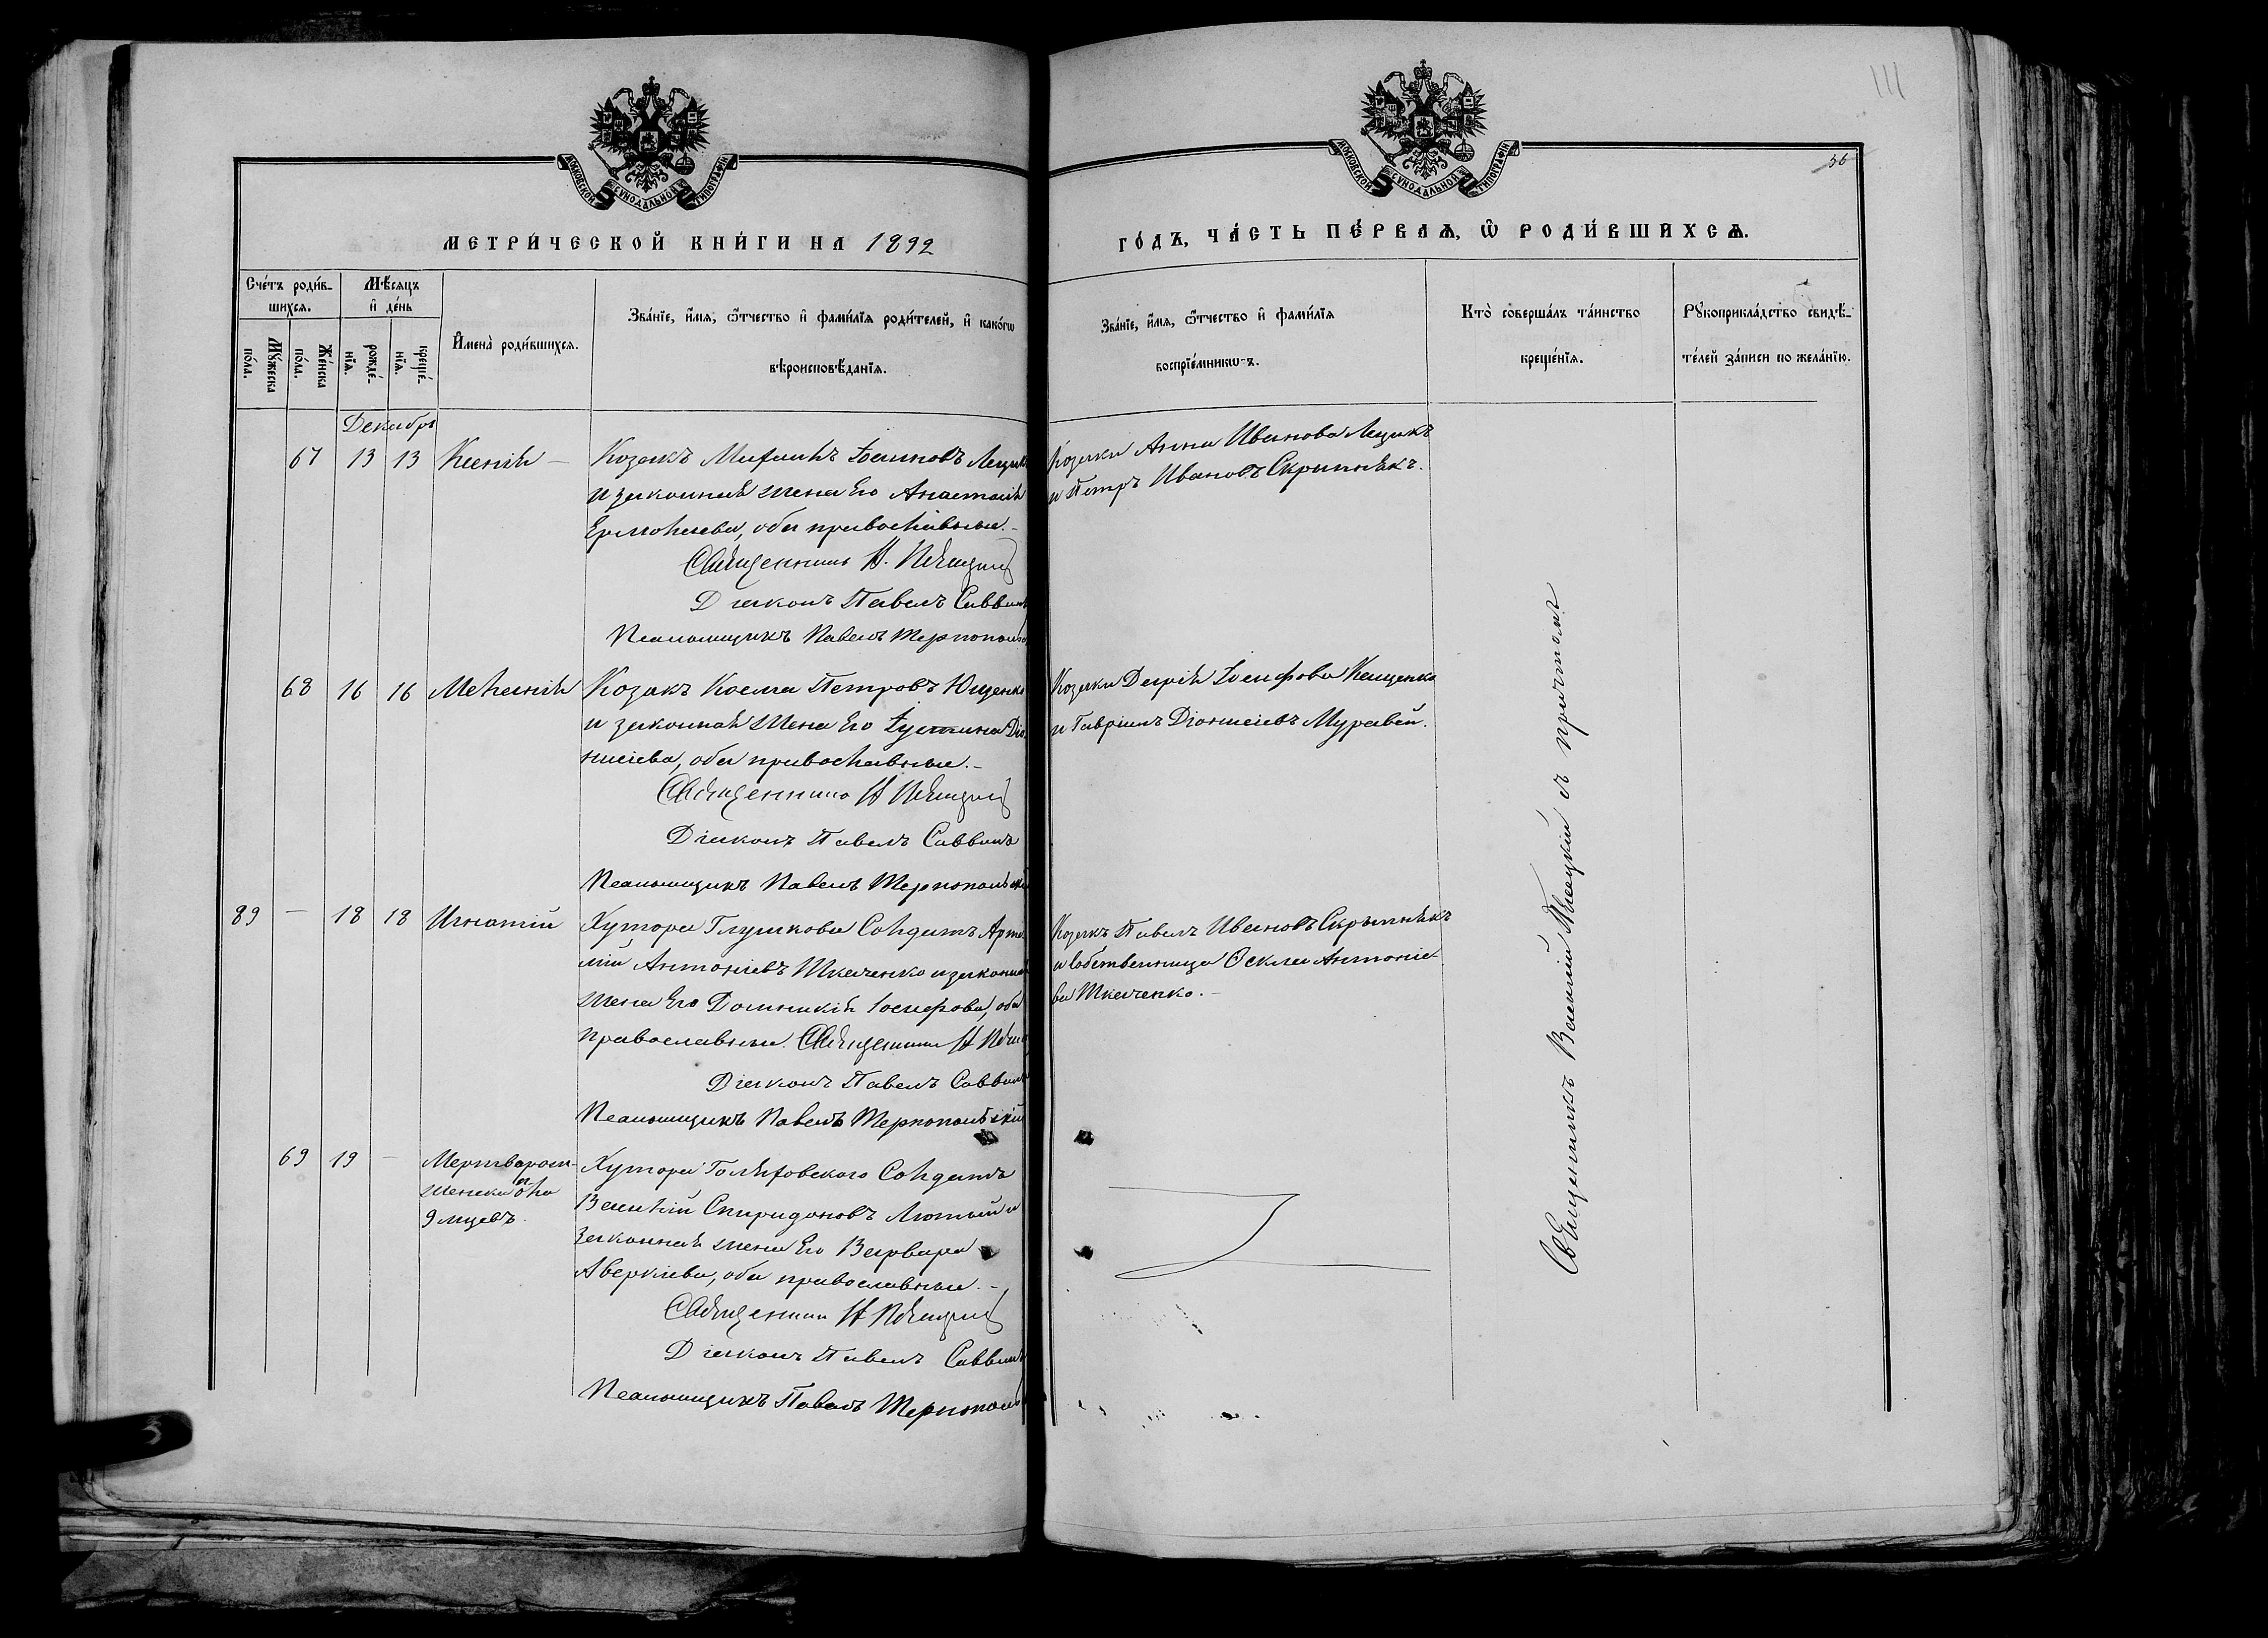 111
56
МОСКОВСКОЙ СѴНОДАЛЬНОЙ ТИПОГРАФІИ
МОСКОВСКОЙ СѴНОДАЛЬНОЙ ТИПОГРАФІИ
МЕТРИ́ЧЕСКОЙ КНИ́ГИ НА 1892
ГО́ДЪ, ЧА́СТЬ ПЕ́РВАѦ, Ѡ҆ РОДИ́ВШИХСѦ.
Сче́тъ роди́в-
шихсѧ.
Мꙋ́жеска по́ла.
Же́нска по́ла.
Мѣ́сѧцъ
и҆ де́нь
рожде́-
нїѧ.
креще́-
нїѧ.
И҆мена̀ роди́вшихсѧ.
Зва́нїе, и҆́мѧ, ѻ҆́тчество и҆ фами́лїѧ роди́телей, и҆ како́гѡ
вѣроисповѣ́данїѧ.
Зва́нїе, и҆́мѧ, ѻ҆́тчество и҆ фами́лїѧ
воспрїе́мникѡвъ.
Кто̀ соверша́лъ та́инство
креще́нїѧ.
Рꙋкоприкла́дство свидѣ́-
телей за́писи по жела́нїю.
Декабрь
67 13 13 Ксенія — Козакъ
и законная жена его Анастасія
Ермолаева, оба православные.-
Священникъ
Діаконъ Павелъ Саввинъ
Псаломщикъ Павелъ Тернополь
Козаки Анна Иванова
и Петръ Ивановъ Скрипникъ.
68 16 16 Меланія Козакъ Косма Петровъ Ющенко
и законная жена его Іустина Діо
нисіева, оба православные.-
Священникъ
Діаконъ Павелъ Саввинъ
Псаломщикъ Павелъ Тернопольскій
Козаки Дарія Іосифова
и Гавріилъ Діонисіевъ Муравей.
89 — 18 18 Игнатій Хутора Глушкова Солдатъ Арте
мій Антоніевъ Ткаченко и законная
жена его Домникія Іосифова, оба
православные. Священникъ
Діаконъ Павелъ Саввинъ
Псаломщикъ Павелъ Тернопольскій
Козакъ Павелъ Ивановъ Скрыпникъ
и собственница Ѳекла Антоніе
ва Ткаченко.-
69 19 — Мертворож-
женска пола
9 мцевъ. Хутора Солдатъ
Василій Спиридоновъ Лютый и
законная жена его Варвара
Аверкіева, оба православные.-
Священникъ
Діаконъ Павелъ Саввинъ
Псаломщикъ Павелъ Тернополь
Священникъ Василій съ причтомъ